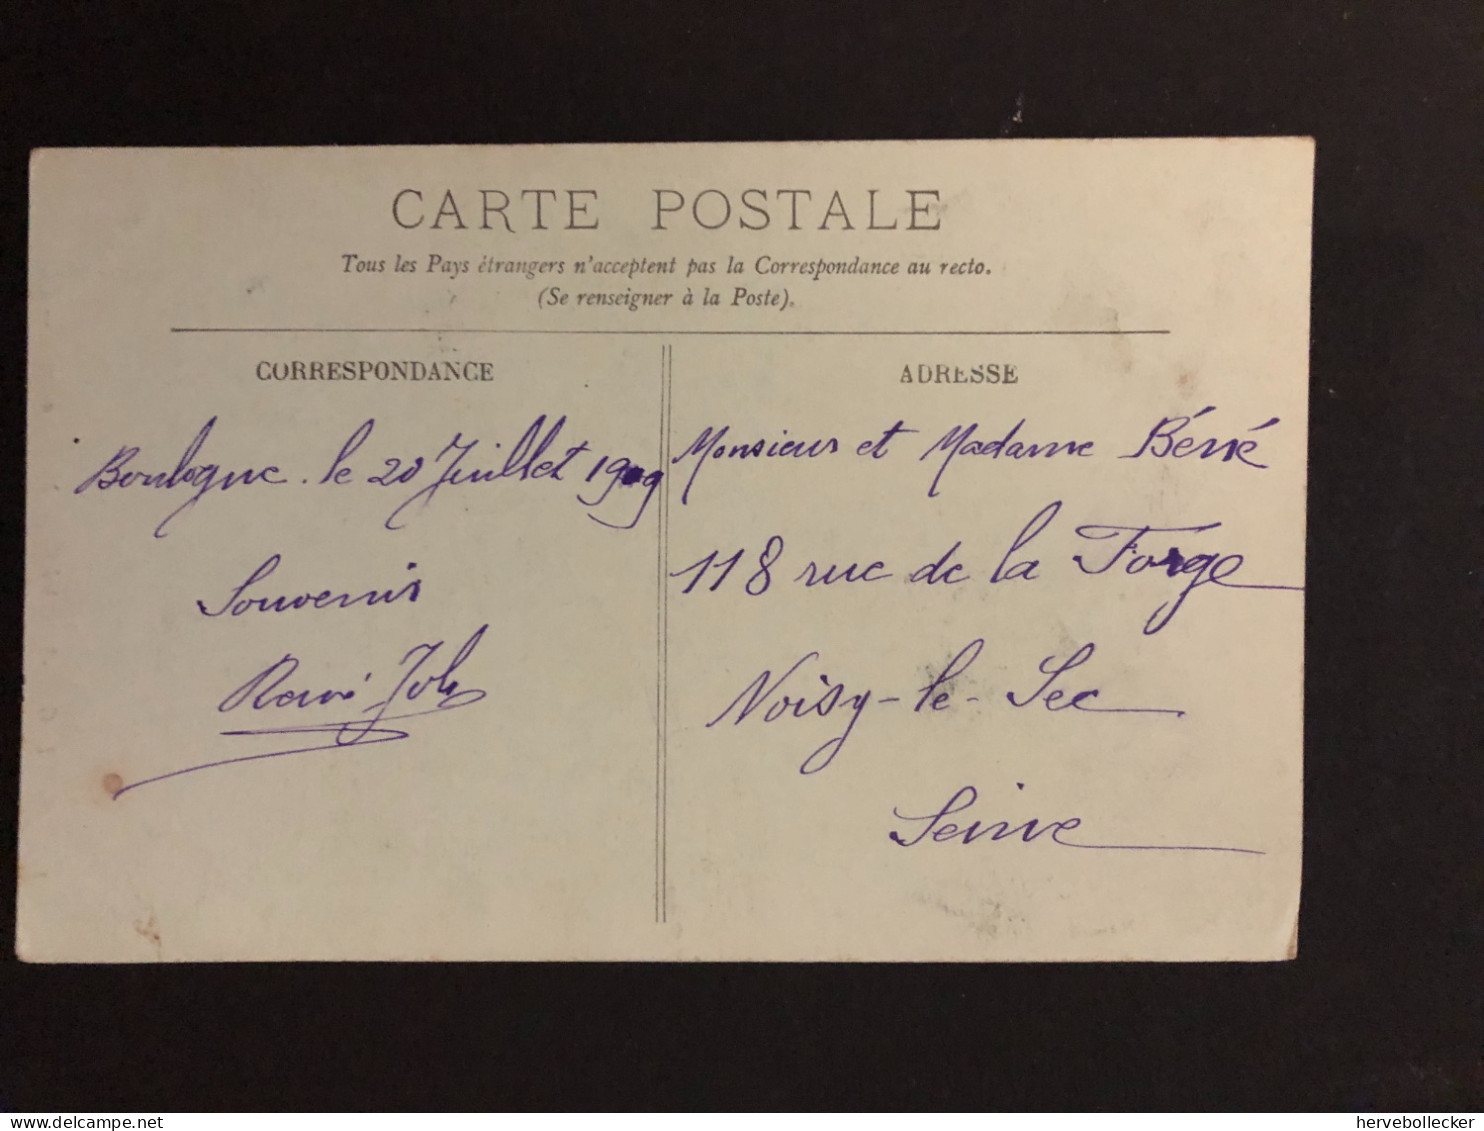 CARTE POSTALE
Tous les Pays étrangers n'acceptent pas la Correspondance au recto.
(Se renseigner à la Poste).
CORRESPONDANCE
Boulogne. le 20 Juillet 1909
Souvenir
ADRESSE
Monsieur et Madame
118 rue de la Forge
Noisy-le-Sec
Seine
delcampe.net
hervebollecker